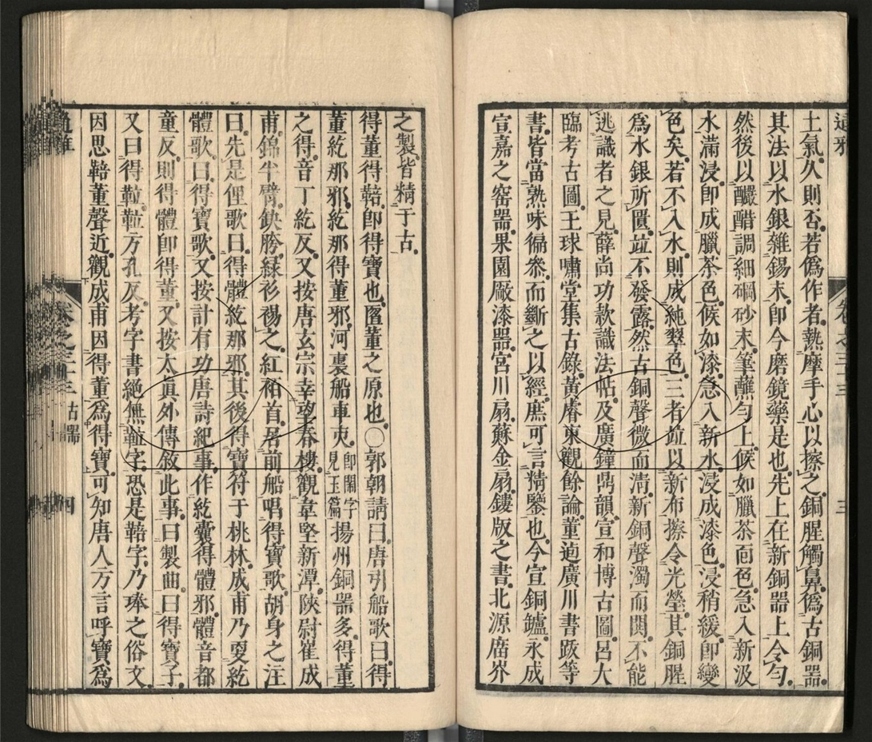 通雅
卷之三十三
三
土氣久則否若僞作者熱摩手心以擦之銅腥觸鼻僞古銅器
其法以水銀雜錫末即今磨鏡藥是也先上在新銅器上令勻
然後以釅醋調細硇砂末筆蘸勻上候如臘茶面色急入新汲
水滿浸即成臘茶色候如漆急入新水浸成漆色浸稍緩即變
色矣若不入水則成純翠色三者竝以新布擦令光瑩其銅腥
爲水銀所匱竝不發露然古銅聲微而清新銅聲濁而閧不能
逃識者之見薛尚功款識法帖及廣鐘鼎韻宣和博古圖呂大
臨考古圖王球嘯堂集古錄黃睿東觀餘論董逌廣川書跋等
書皆當熟味徧叅而斷之以經庶可言精鑒也今宣銅鑪永成
宣嘉之窑器果園厰漆器宮川扇蘇金扇鏤版之書北源廣界
之製皆精于古
得董得䩭即得寶也匿董之原也○郭朝請曰唐引船歌曰得
董紇那邪紇那得董邪河裏船車㕰即鬧字見玉篇揚州銅器多得董
之得音丁紇反又按唐玄宗幸望春樓觀韋堅新潭陝尉崔成
甫錦半臂鈌胯綠衫裼之紅袹首居前船唱得寶歌胡身之注
曰先是俚歌曰得體紇那邪其後得寶符于桃林成甫乃更紇
體歌曰得寶歌又按計有功唐詩紀事作紇囊得體邪體音都
童反則得體即得董又按太真外傳敘此事曰製曲曰得寶子
又曰得䩸䩸方孔反考字書絶無䩸字恐是䩭字乃琫之俗文
因思䩭董聲近觀成甫因得董爲得寶可知唐人方言呼寶爲
通雅
卷之三十三 古器
四